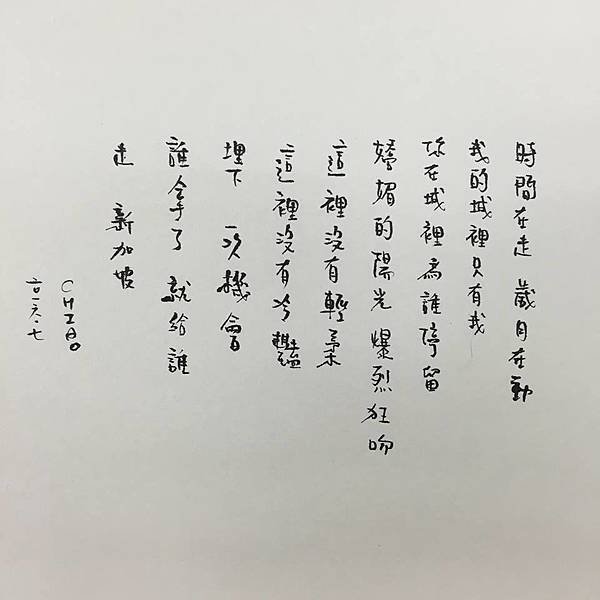 時間在走 歲月在動
我的城裡只有我
你在城裡為誰停留
嬌媚的陽光爆烈狂吻
這裡沒有輕柔
這裡沒有冷艷
埋下 一次機會
誰拿了 就給誰
走 新加坡
二〇一六.七